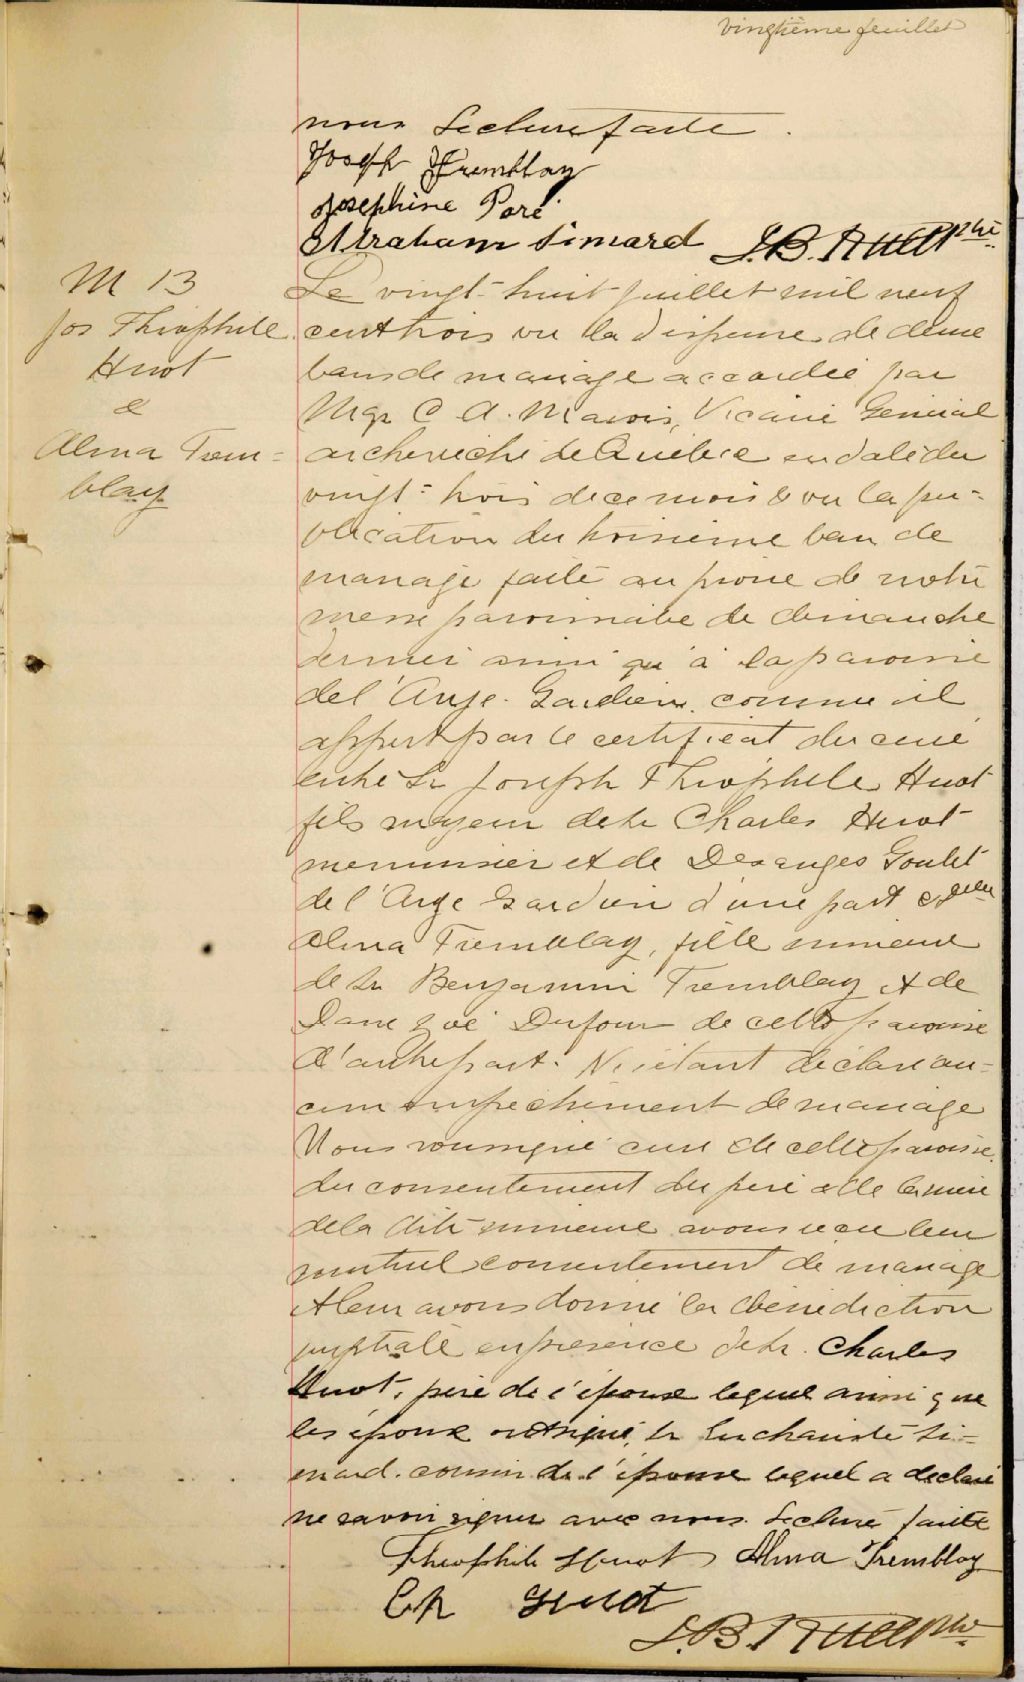 vingtième feuillet
nous Lecture faite.
Joseph Tremblay
Josephine Paré
Abraham Simard J.B. Ruel ptre
M 13
Jos Théophile
Huot
&
Alma Trem=
blay
Le vingt-huit juillet mil neuf
cent trois vu la dispense de deux
bans de mariage accordée par
Mgr C. A. Marois, Vicaire Général
archevêché de Québec en date du
vingt-trois de ce mois & vu la pu=
blication du troisième ban de
mariage faite au prône de notre
messe paroissiale de dimanche
dernier ainsi qu'à la paroisse
de l'Ange-Gardien comme il
appert par le certificat du curé
entre Sr Joseph Théophile Huot
fils majeur de Sr Charles Huot
menuisier et de Desanges Goulet
de l'Ange Gardien d'une part et
Alma Tremblay, fille mineure
de Sr Benjamin Tremblay et de
Dame Zoé Dufour de cette paroisse
d'autre part. Ne s'étant déclaré au=
cun empêchement de mariage
Nous soussigné curé de cette paroisse
du consentement du père et de la mère
de la dite mineure avons reçu leur
mutuel consentement de mariage
et leur avons donné la bénédiction
nuptiale en présence de Sr. Charles
Huot, père de l'époux lequel ainsi que
les époux ont signé, Sr Euchariste Si=
mard. cousin de l'épouse lequel a déclaré
ne savoir signer avec nous. Lecture faite
Théophile Huot Alma Tremblay
Ch Huot
J.B. Ruel ptre